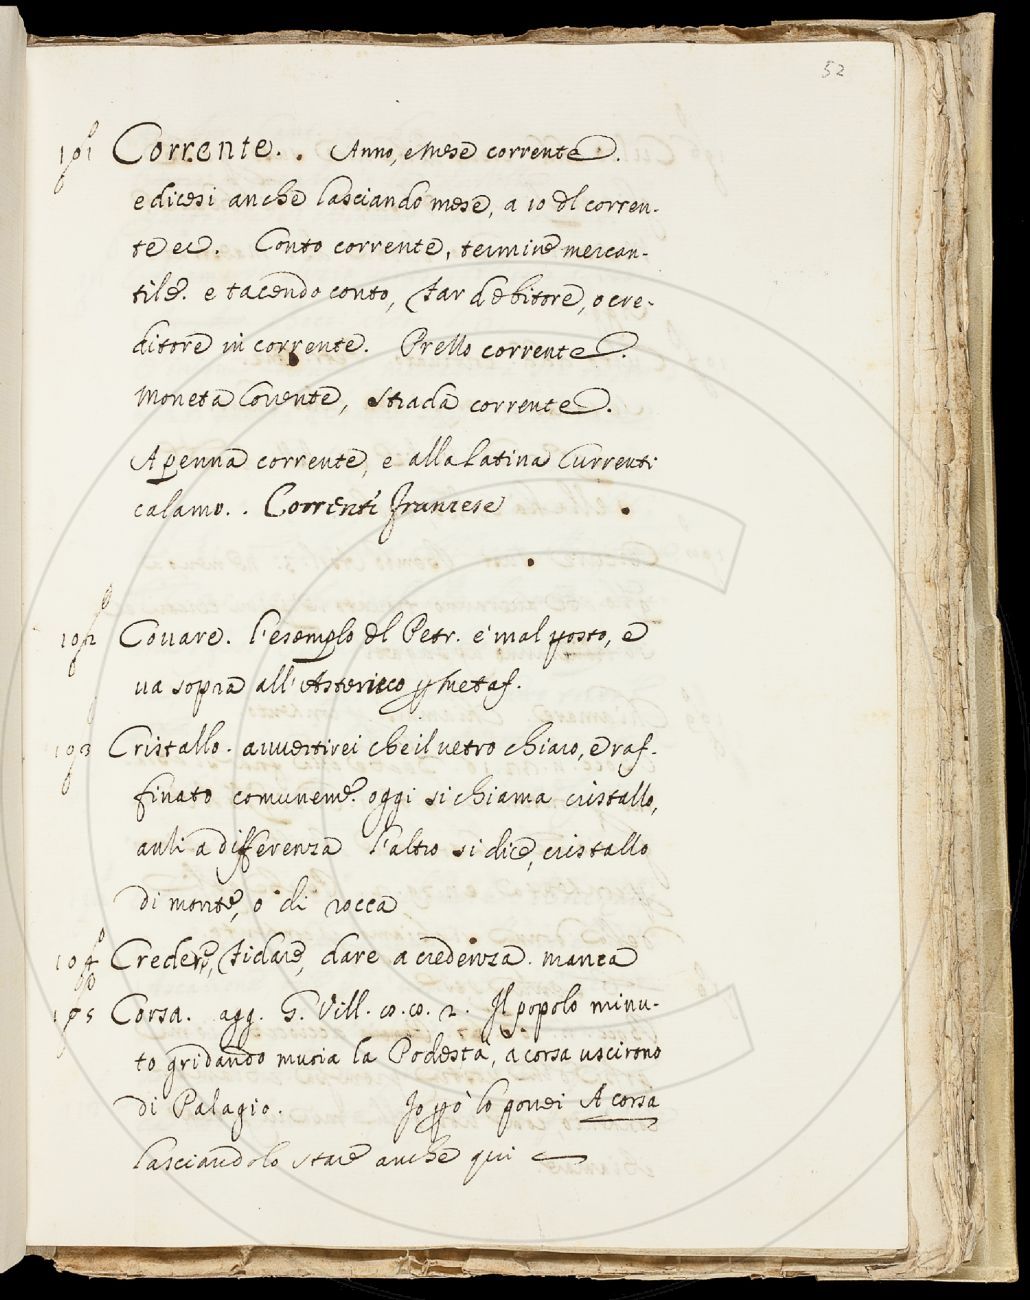 52
101 Corrente. . Anno, e Mese corrente.
e dicesi anche lasciando mese, a 10 dl corren-
te ec. Conto corrente, termine mercan-
tile. e tacendo conto, far debitore, o cre-
ditore in corrente. Prello corrente.
Moneta Corrente, strada corrente.
A penna corrente, e alla latina Currenti
calamo. . Correnti francese
102 Covare. l'esemplo dl Petr. e' mal posto, e
va sopra all'Asterisco p Metaf.
103 Cristallo. avvertirei che il vetro chiaro, e raf-
finato comuneme. oggi si chiama cristallo,
anzi a differenza l'altro si dice, cristallo
di monte, o di rocca
104 Credere, fidare, dare a credenza. manca
105 Corsa. agg. G. Vill. co. co. 2. Il popolo minu-
to gridando muoia la Podestà, a corsa uscirono
di Palagio. Io però lo porrei A corsa
lasciandolo stare anche qui